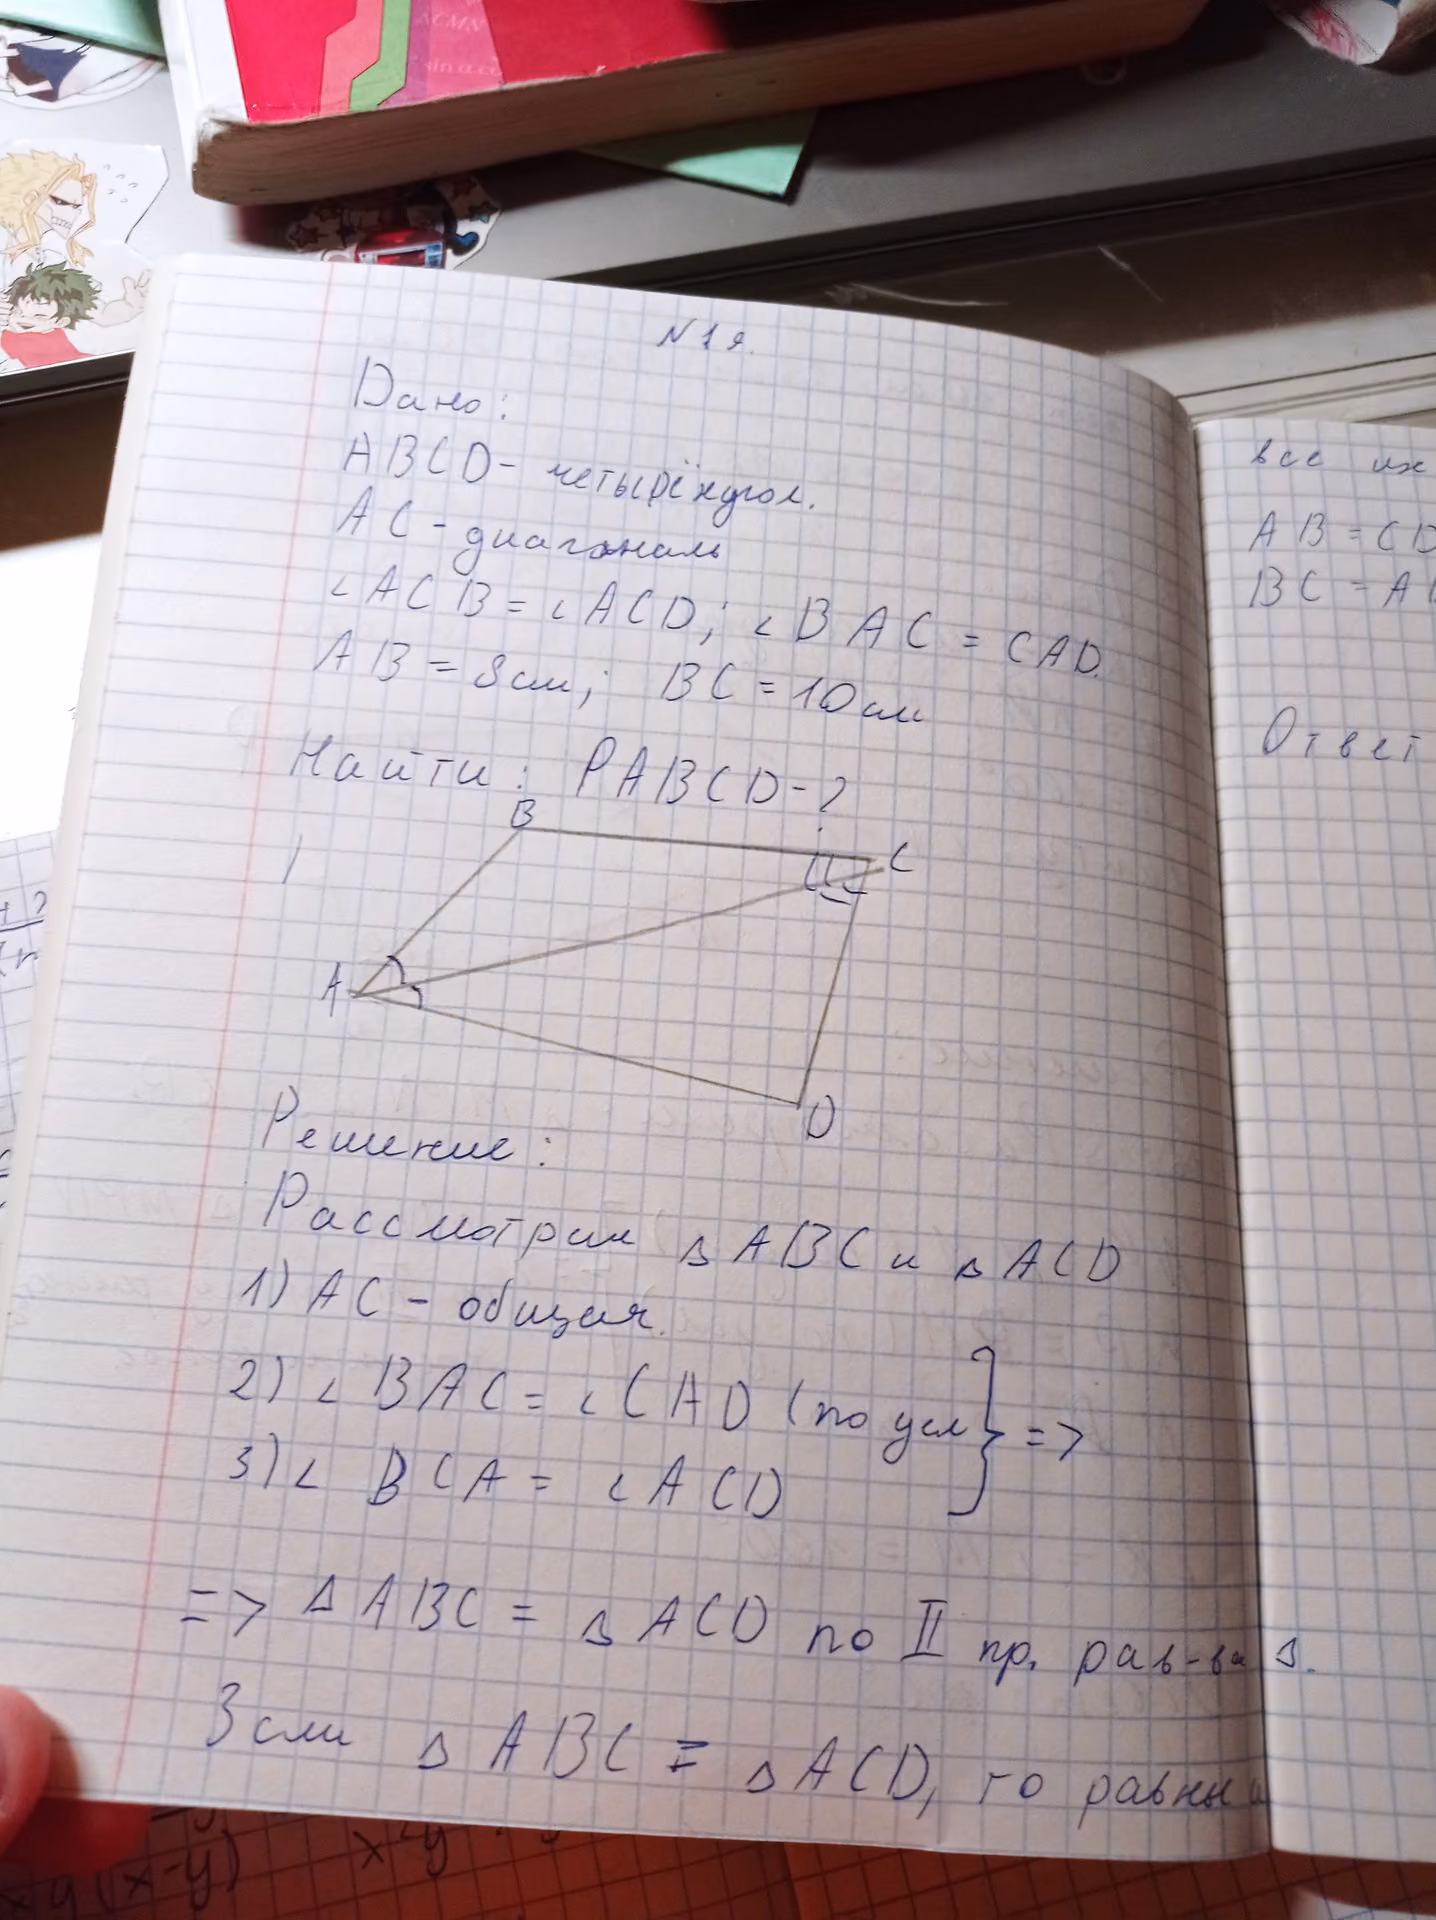 ACMN
sin α.co
N 1 я.
Дано:
ABCD - четырёхугол.
AC - диагональ
∠ACB = ∠ACD; ∠BAC = CAD.
AB = 8 см; BC = 10 см
Найти: PABCD - ?
B
C
A
D
Решение:
Рассмотрим ΔABC и ΔACD
1) AC - общая.
2) ∠BAC = ∠CAD (по усл
3) ∠BCA = ∠ACD
} =>
=> ΔABC = ΔACD по II пр. рав-ва Δ.
Если ΔABC = ΔACD, то равны и
все их
AB = CD
BC = A
Ответ
xy(x-y)